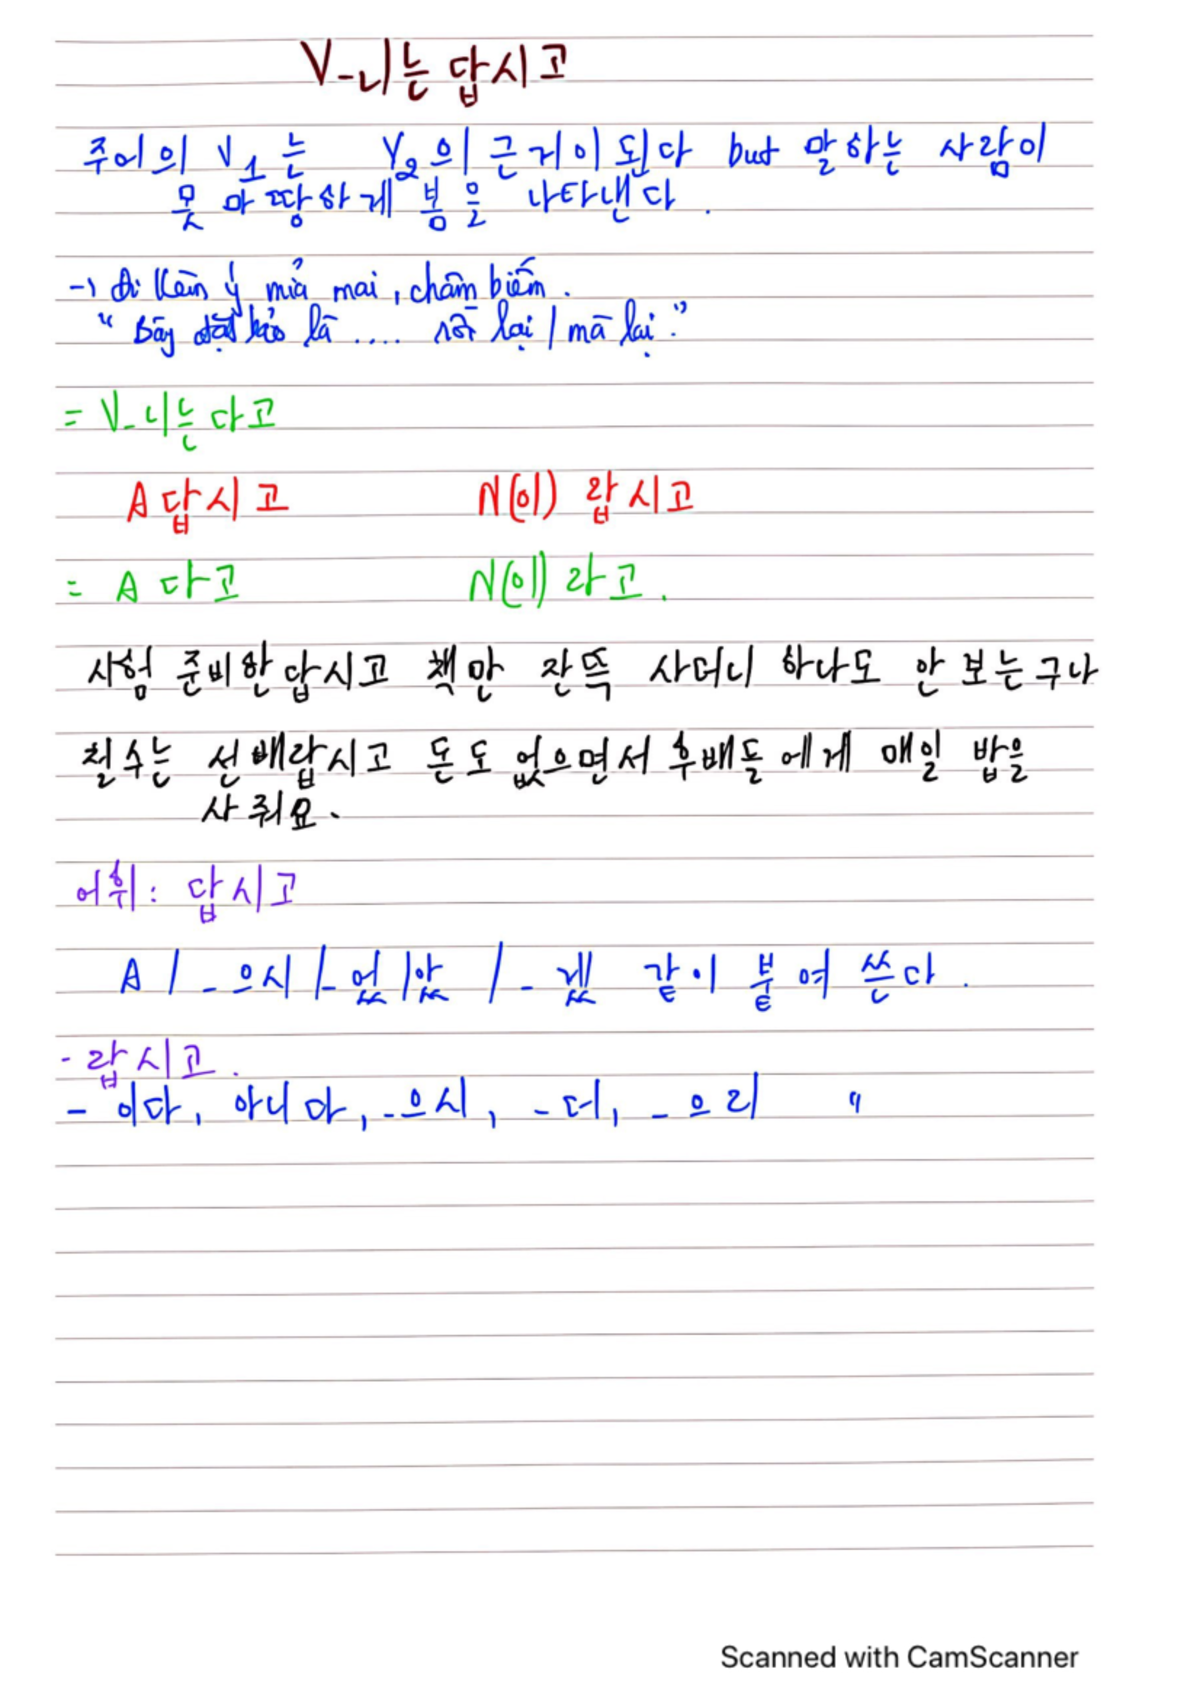 V-ㄴ/는답시고
주어의 V1는 V2의 근거이 된다 but 말하는 사람이
못마땅하게 봄을 나타낸다.
→ đi kèm ý mỉa mai, châm biếm.
"Bày đặt bảo là .... rồi lại / mà lại."
= V-ㄴ/는다고
A 답시고 N(이) 랍시고
= A 다고 N(이) 라고.
시험 준비한답시고 책만 잔뜩 사더니 하나도 안 보는구나
철수는 선배랍시고 돈도 없으면서 후배들에게 매일 밥을
사 줘요.
어휘: 답시고
A / -으시 / -었/았 / -겠 같이 붙여 쓴다.
- 랍시고.
- 이다, 아니다, -으시, -더, -으리 "
Scanned with CamScanner